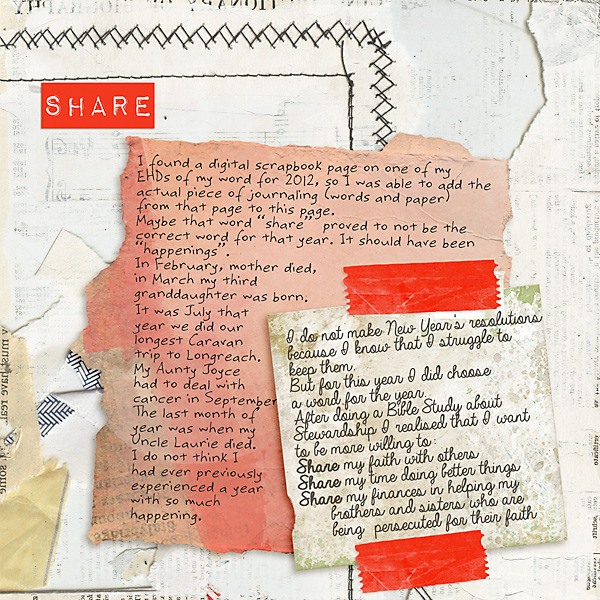 SHARE
I found a digital scrapbook page on one of my
EHDs of my word for 2012, so I was able to add the
actual piece of journaling (words and paper)
from that page to this page.
Maybe that word "share" proved to not be the
correct word for that year. It should have been
"happenings".
In February, mother died,
in March my third
granddaughter was born.
It was July that
year we did our
longest Caravan
trip to Longreach.
My Aunty Joyce
had to deal with
cancer in September
The last month of
year was when my
Uncle Laurie died.
I do not think I
had ever previously
experienced a year
with so much
happening.
I do not make New Year's resolutions
because I know that I struggle to
keep them.
But for this year I did choose
a word for the year.
After doing a Bible Study about
Stewardship I realised that I want
to be more willing to:
Share my faith with others
Share my time doing better things
Share my finances in helping my
brothers and sisters who are
being persecuted for their faith